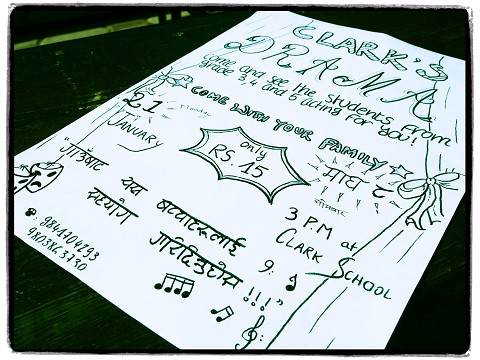 CLARK'S
DRAMA
Come and see the students from
grade 3, 4 and 5 acting for you!
COME WITH YOUR FAMILY
21 Monday
JANUARY
only
RS 15
माघ ८
सोमबार
3 PM at
CLARK SCHOOL
गाउँबाट यस
सहयोग गरिदिनुहोस !!!"
: 9841704293
9803863730